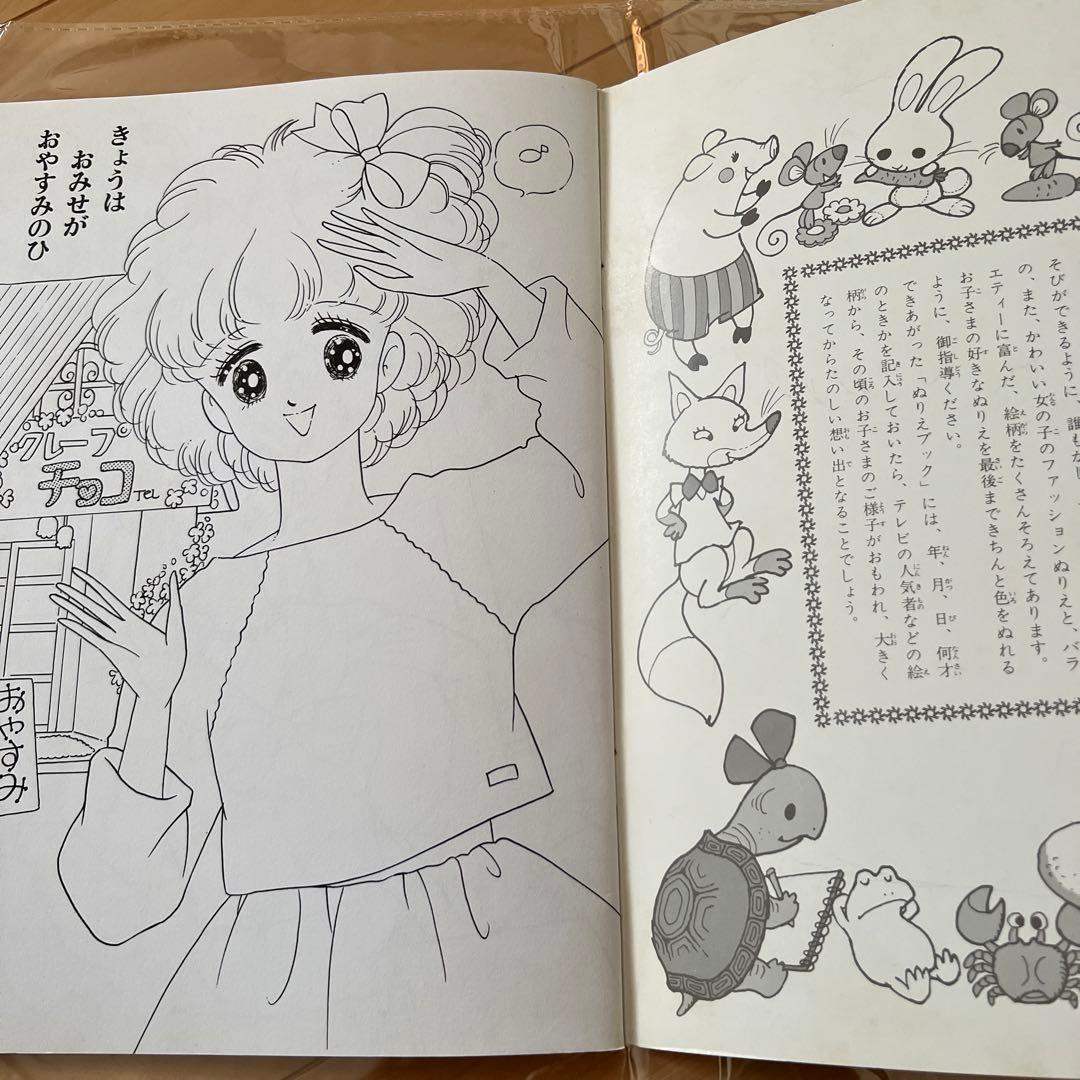 きょうは
おみせが
おやすみのひ
クレープ
チョコ
TEL
おやすみ
そびができるように、誰もが
の、また、かわいい女の子のファッションぬりえと、バラ
エティーに富んだ、絵柄をたくさんそろえてあります。
お子さまの好きなぬりえを最後まできちんと色をぬれる
ように、御指導ください。
できあがった「ぬりえブック」には、年、月、日、何才
のときかを記入しておいたら、テレビの人気者などの絵
柄から、その頃のお子さまのご様子がおもわれ、大きく
なってからたのしい想い出となることでしょう。